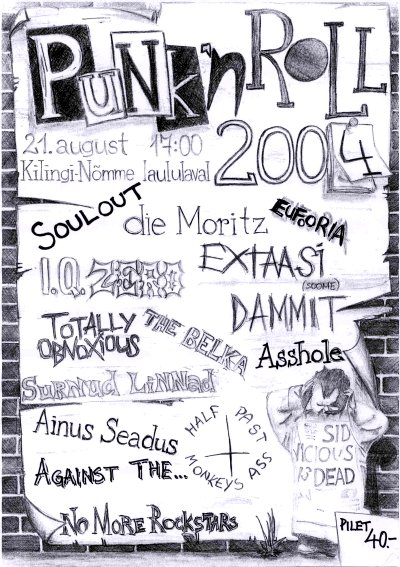 PUNK'n ROLL
2004
21. august 17:00
Kilingi-Nõmme laululaval
SOULOUT
die Moritz
EUFOORIA
I.Q. ZERO
EXTAASI
(SOOME)
DAMMIT
TOTALLY
OBNOXIOUS
THE BELKA
Asshole
Surnud Linnad
Ainus Seadus
HALF PAST
MONKEYS ASS
AGAINST THE...
SID
VICIOUS
IS
DEAD
NO MORE ROCKSTARS
PILET
40.-